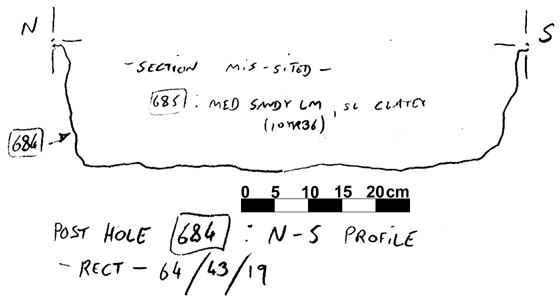 N S
- SECTION MIS-SITED -
685 : MED SANDY LM, SL CLAYEY
(10YR36)
684
0 5 10 15 20cm
POST HOLE 684 : N-S PROFILE
- RECT - 64/43/19